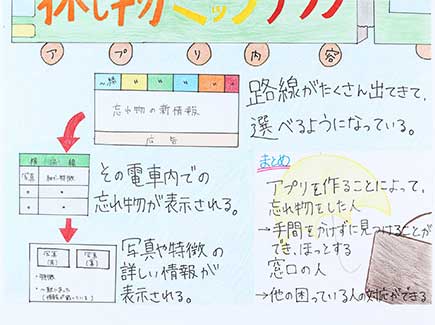 探し物ミップアプリ
アプリ内容
〜線 〃 〃 〃 〃 〃
忘れ物の新情報
広告
路線がたくさん出てきて、
選べるようになっている。
写真 細かい特徴
その電車内での
忘れ物が表示される。
写真(表) 写真(裏)
・特徴
写真や特徴の
詳しい情報が
表示される。
まとめ
アプリを作ることによって、
忘れ物をした人
→手間をかけずに見つけることが
でき、ほっとする
窓口の人
→他の困っている人の対応ができる